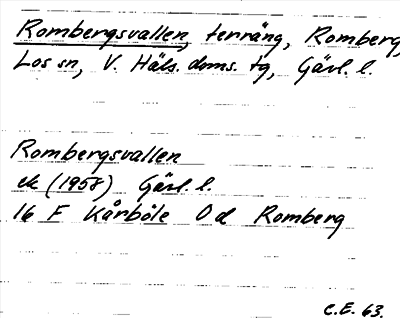 Rombergsvallen, terräng, Romberg,
Los sn, V. Häls. doms. tg, Gävl. l.
Rombergsvallen
ek (1958) Gävl. l.
16 F Kårböle 0 d Romberg
C.E. 63.